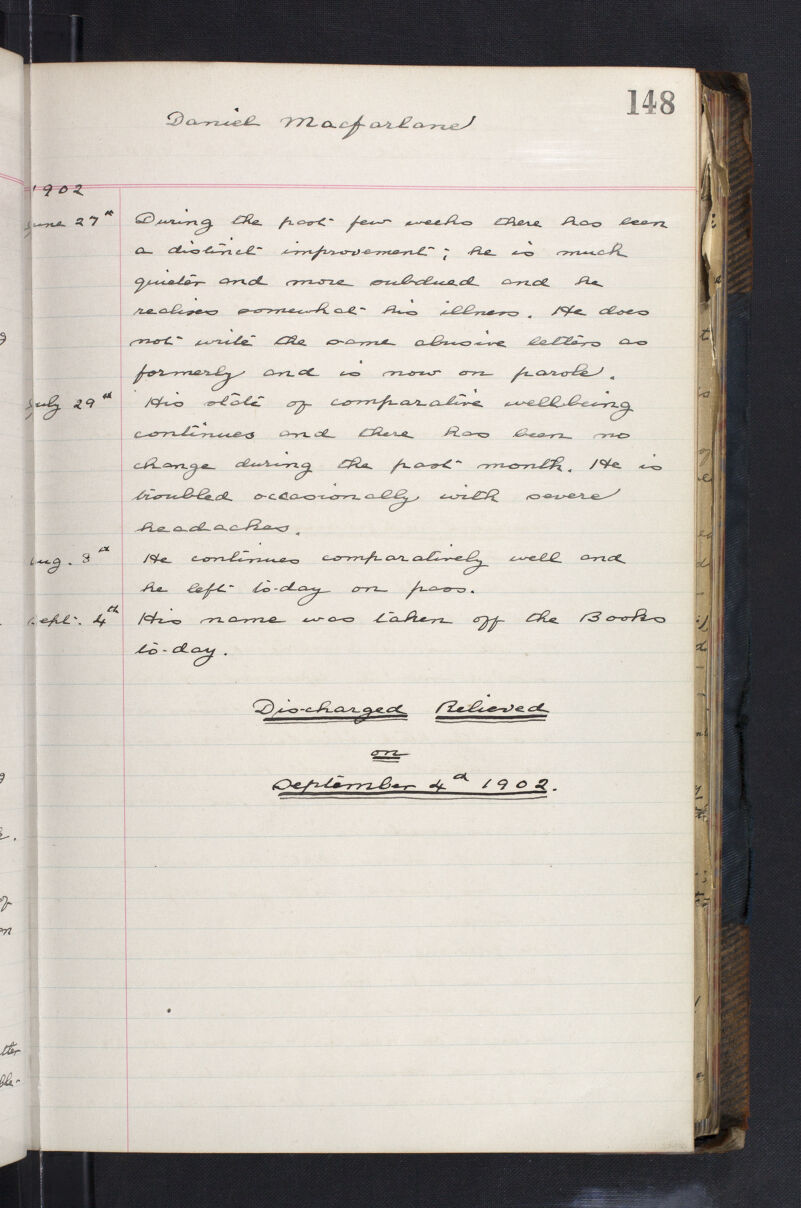 148
Daniel Macfarlane
1902
June 27th During the past few weeks there has been
a distinct improvement; he is much
quieter and more subdued and he
realises somewhat his illness. He does
not write the same abusive letters as
formerly and is now on parole.
July 29th His state of comparative wellbeing
continues and there has been no
change during the past month. He is
troubled occasionally with severe
headaches.
Aug. 8th He continues comparatively well and
he left to-day on pass.
Sept. 4th His name was taken off the Books
to-day.
Discharged Relieved
on
September 4th 1902.